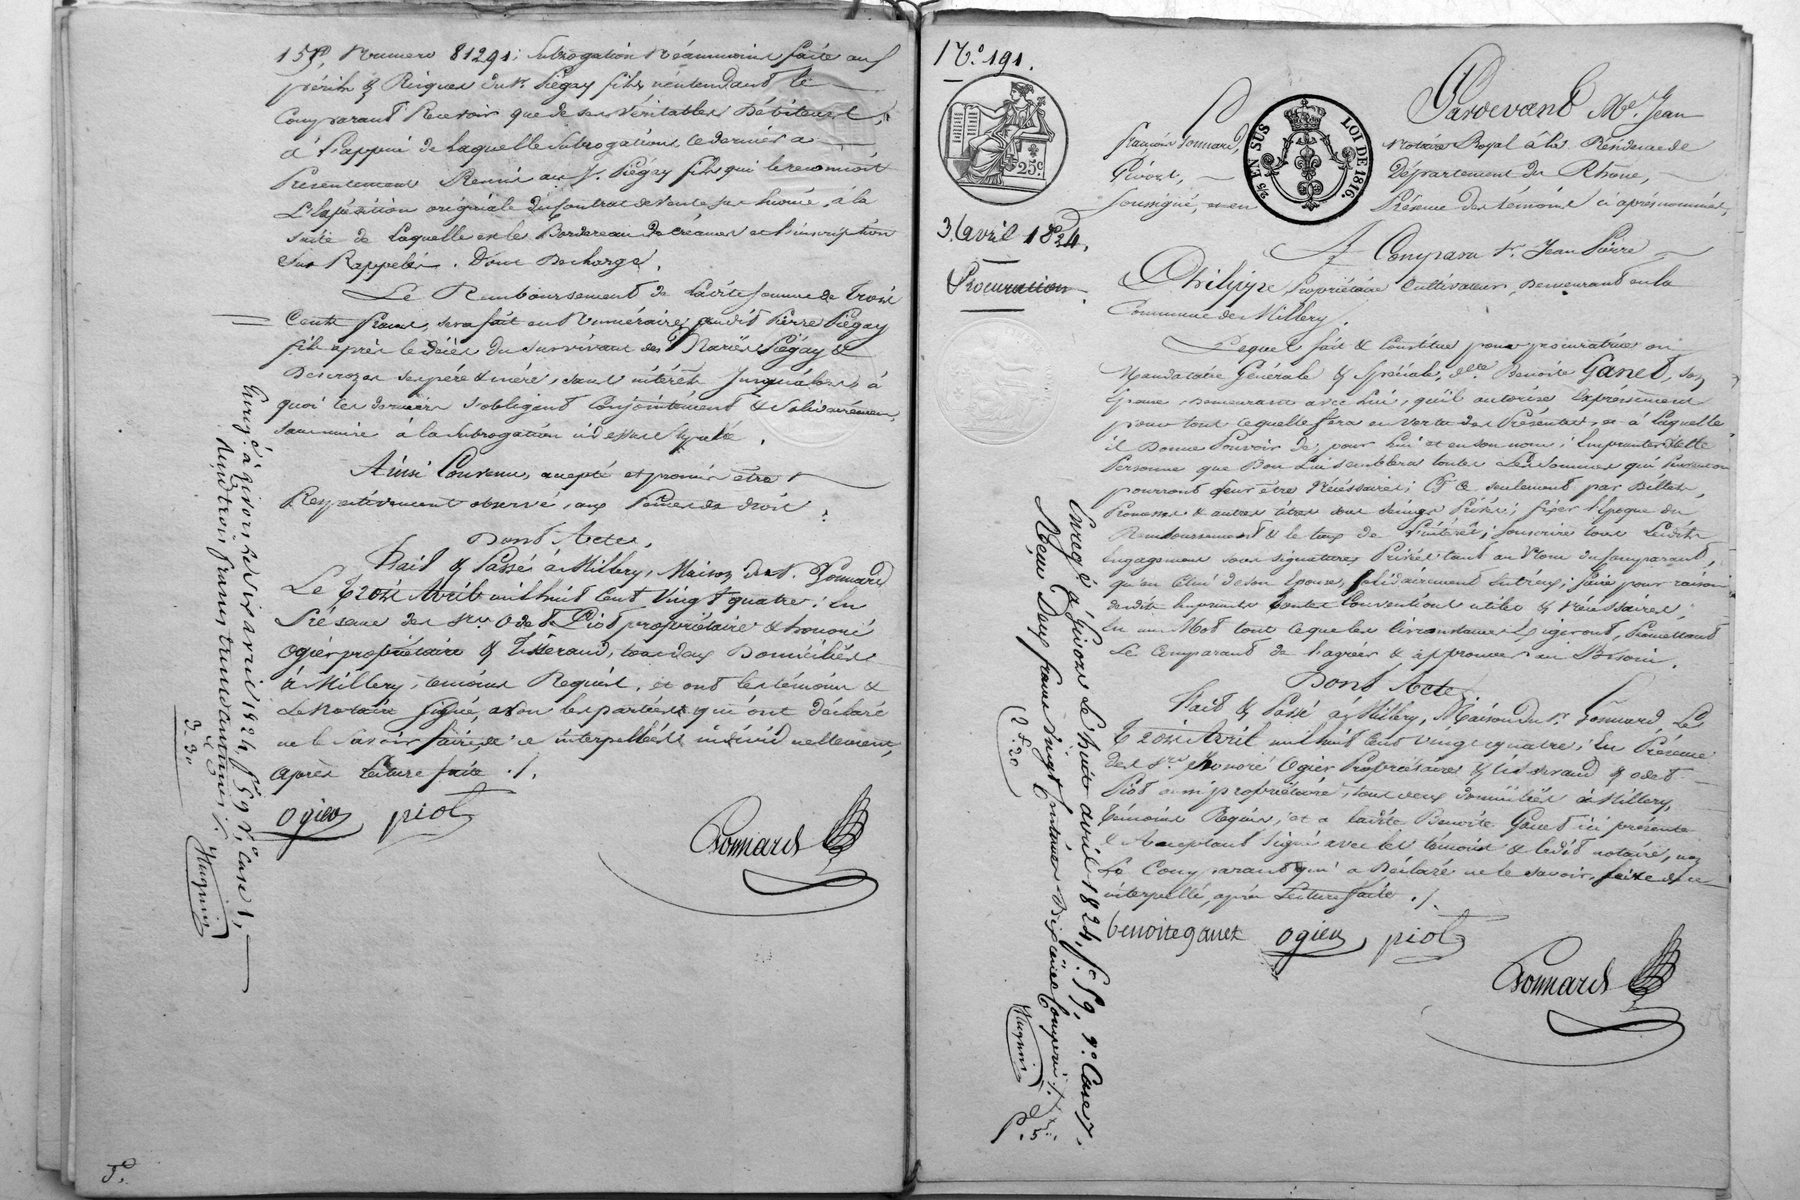 15 fo, Numero 81291; Subrogation Néammoins faite aux
périls & Risques du Sr. Piégay fils, n'entendant le
Comparant Recevoir que de ses Véritables Débiteurs,
à l'appui de laquelle Subrogation, ce dernier a
Présentement Remis au Sr. Piégay fils qui le reconnoit
L'Expédition originale du Contrat de Vente sus énoncé, à la
suite de Laquelle est le Bordereau de créances et l'inscription
sus Rappelés. Dont Décharge.
Le Remboursement de ladite Somme de Trois
Cents francs, sera fait en Numéraire, audit Pierre Piégay
fils après le décès du survivant des Mariés Piégay &
Descrozes ses père & mère, sans intérêts jusqu'alors à
quoi ces derniers s'obligent Conjointement & Solidairement
sans nuire à la Subrogation ci dessus Stipulée.
Ainsi Convenu, accepté et promis être
Respectivement observé, aux Peines de droit.
Dont Acte,
Fait & Passé à Millery, Maison du Sr. Ponnard
Le Trois Avril mil huit Cent Vingt quatre; En
Présence des Srs. Odet Piot propriétaire & honoré
Ogier propriétaire & Tisserand, tous deux Domiciliés
à Millery, témoins Requis, et ont les témoins &
Le Notaire Signé, non les parties qui ont déclaré
ne le Savoir faire de ce interpellées individuellement,
après Lecture faite ./.
ogier piot
Ponnard
Enregé. à givors le six avril 1824, fo. 59 Vo. Case 1,
Reçu trois francs trente centimes ./.
Hugnin
3. 30
5.
No. 191.
25c.
3. avril 1824.
Procuration
2/5 EN SUS
LOI DE 1816.
Pardevant Me. Jean
françois Ponnard, Notaire Royal à la Résidence de
Givors, Département du Rhône,
Soussigné, et en Présence des témoins ci après nommés,
A Comparu Sr. Jean Pierre
Philippe, Propriétaire Cultivateur, Demeurant en la
Commune de Millery.
Lequel fait & Constitue pour procuratrice ou
Mandataire Générale & Spéciale, delle. Benoite Ganet, son
Epouse, Demeurant avec Lui, qu'il autorise Expréssément
pour tout ce qu'elle fera en Vertu des Présentes, et à Laquelle
il Donne Pouvoir de, pour Lui et en son nom; Emprunter de telle
Personne que Bon Lui semblera toutes les Sommes qui
pourront leur être Nécéssaires; & ce seulement par Billets,
Promesses & autres titres sous seings Privés; fixer l'époque du
Remboursement & le taux de l'intérêt; souscrire tous Lesdits
Engagements sous signatures Privées tant au Nom du Comparant,
qu'en Celui de son Epouse, Solidairement entr'eux; faire pour raison
desdits Emprunts toutes Conventions utiles & Nécéssaires;
En un Mot tout ce que les Circonstances Exigeront, Promettant
Le Comparant de l'agréer & approuver au Besoin.
Dont Acte
Fait & Passé à Millery, Maison du Sr. Ponnard, Le
Trois Avril mil huit Cent Vingt quatre; En Présence
des Srs. honoré Ogier Propriétaire & tisserand & odet
Piot aussi propriétaire, tous deux domiciliés à Millery,
témoins Requis, et a ladite Benoite Ganet ici présente
& Acceptant Signé avec les témoins & ledit notaire, non
Le Comparant qui a Déclaré ne le savoir faire de ce
interpellé, après Lecture faite ./.
benoite ganet ogier piot
Ponnard
Enregé. à Givors le huit avril 1824, fo. 59, Vo. Case 7,
Reçu Deux francs vingt Centimes Dixième Compris ./.
2f. 20
Hugnin